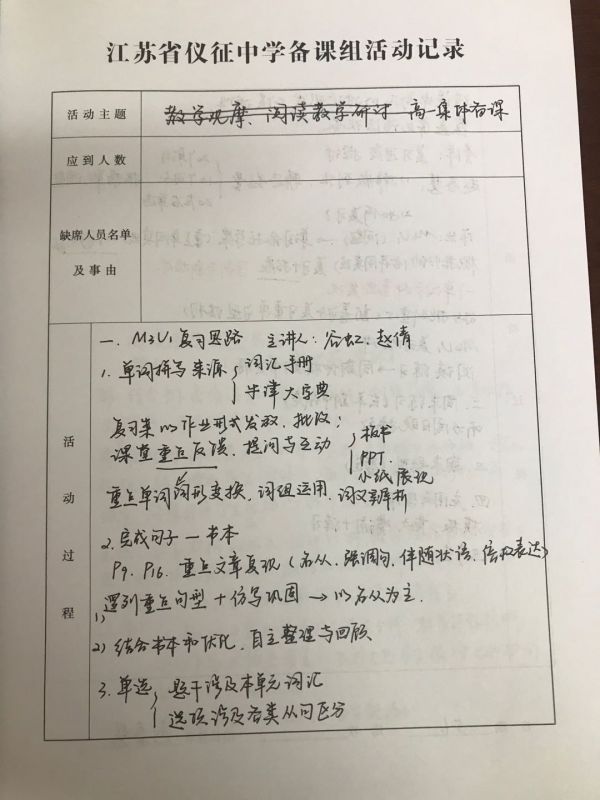 江苏省仪征中学备课组活动记录
活动主题 教学观摩、阅读教学研讨 高一集体备课
应到人数
缺席人员名单
及事由
活动过程
一、M3U1复习思路 主讲人：谷虹、赵倩
1. 单词拼写来源 词汇手册
牛津大字典
复习案以作业形式发放、批改；
课堂重点反馈、提问与互动 板书
PPT.
小纸展现
重点单词词形变换、词组运用、词义辨析
2. 完成句子—书本
P9、P16、重点文章复现（名从、强调句、伴随状语、倍数表达）
1) 罗列重点句型+仿写巩固→以名从为主.
2) 结合书本和优化、自主整理与回顾
3. 单选 题干涉及本单元词汇
选项涉及各类从句区分